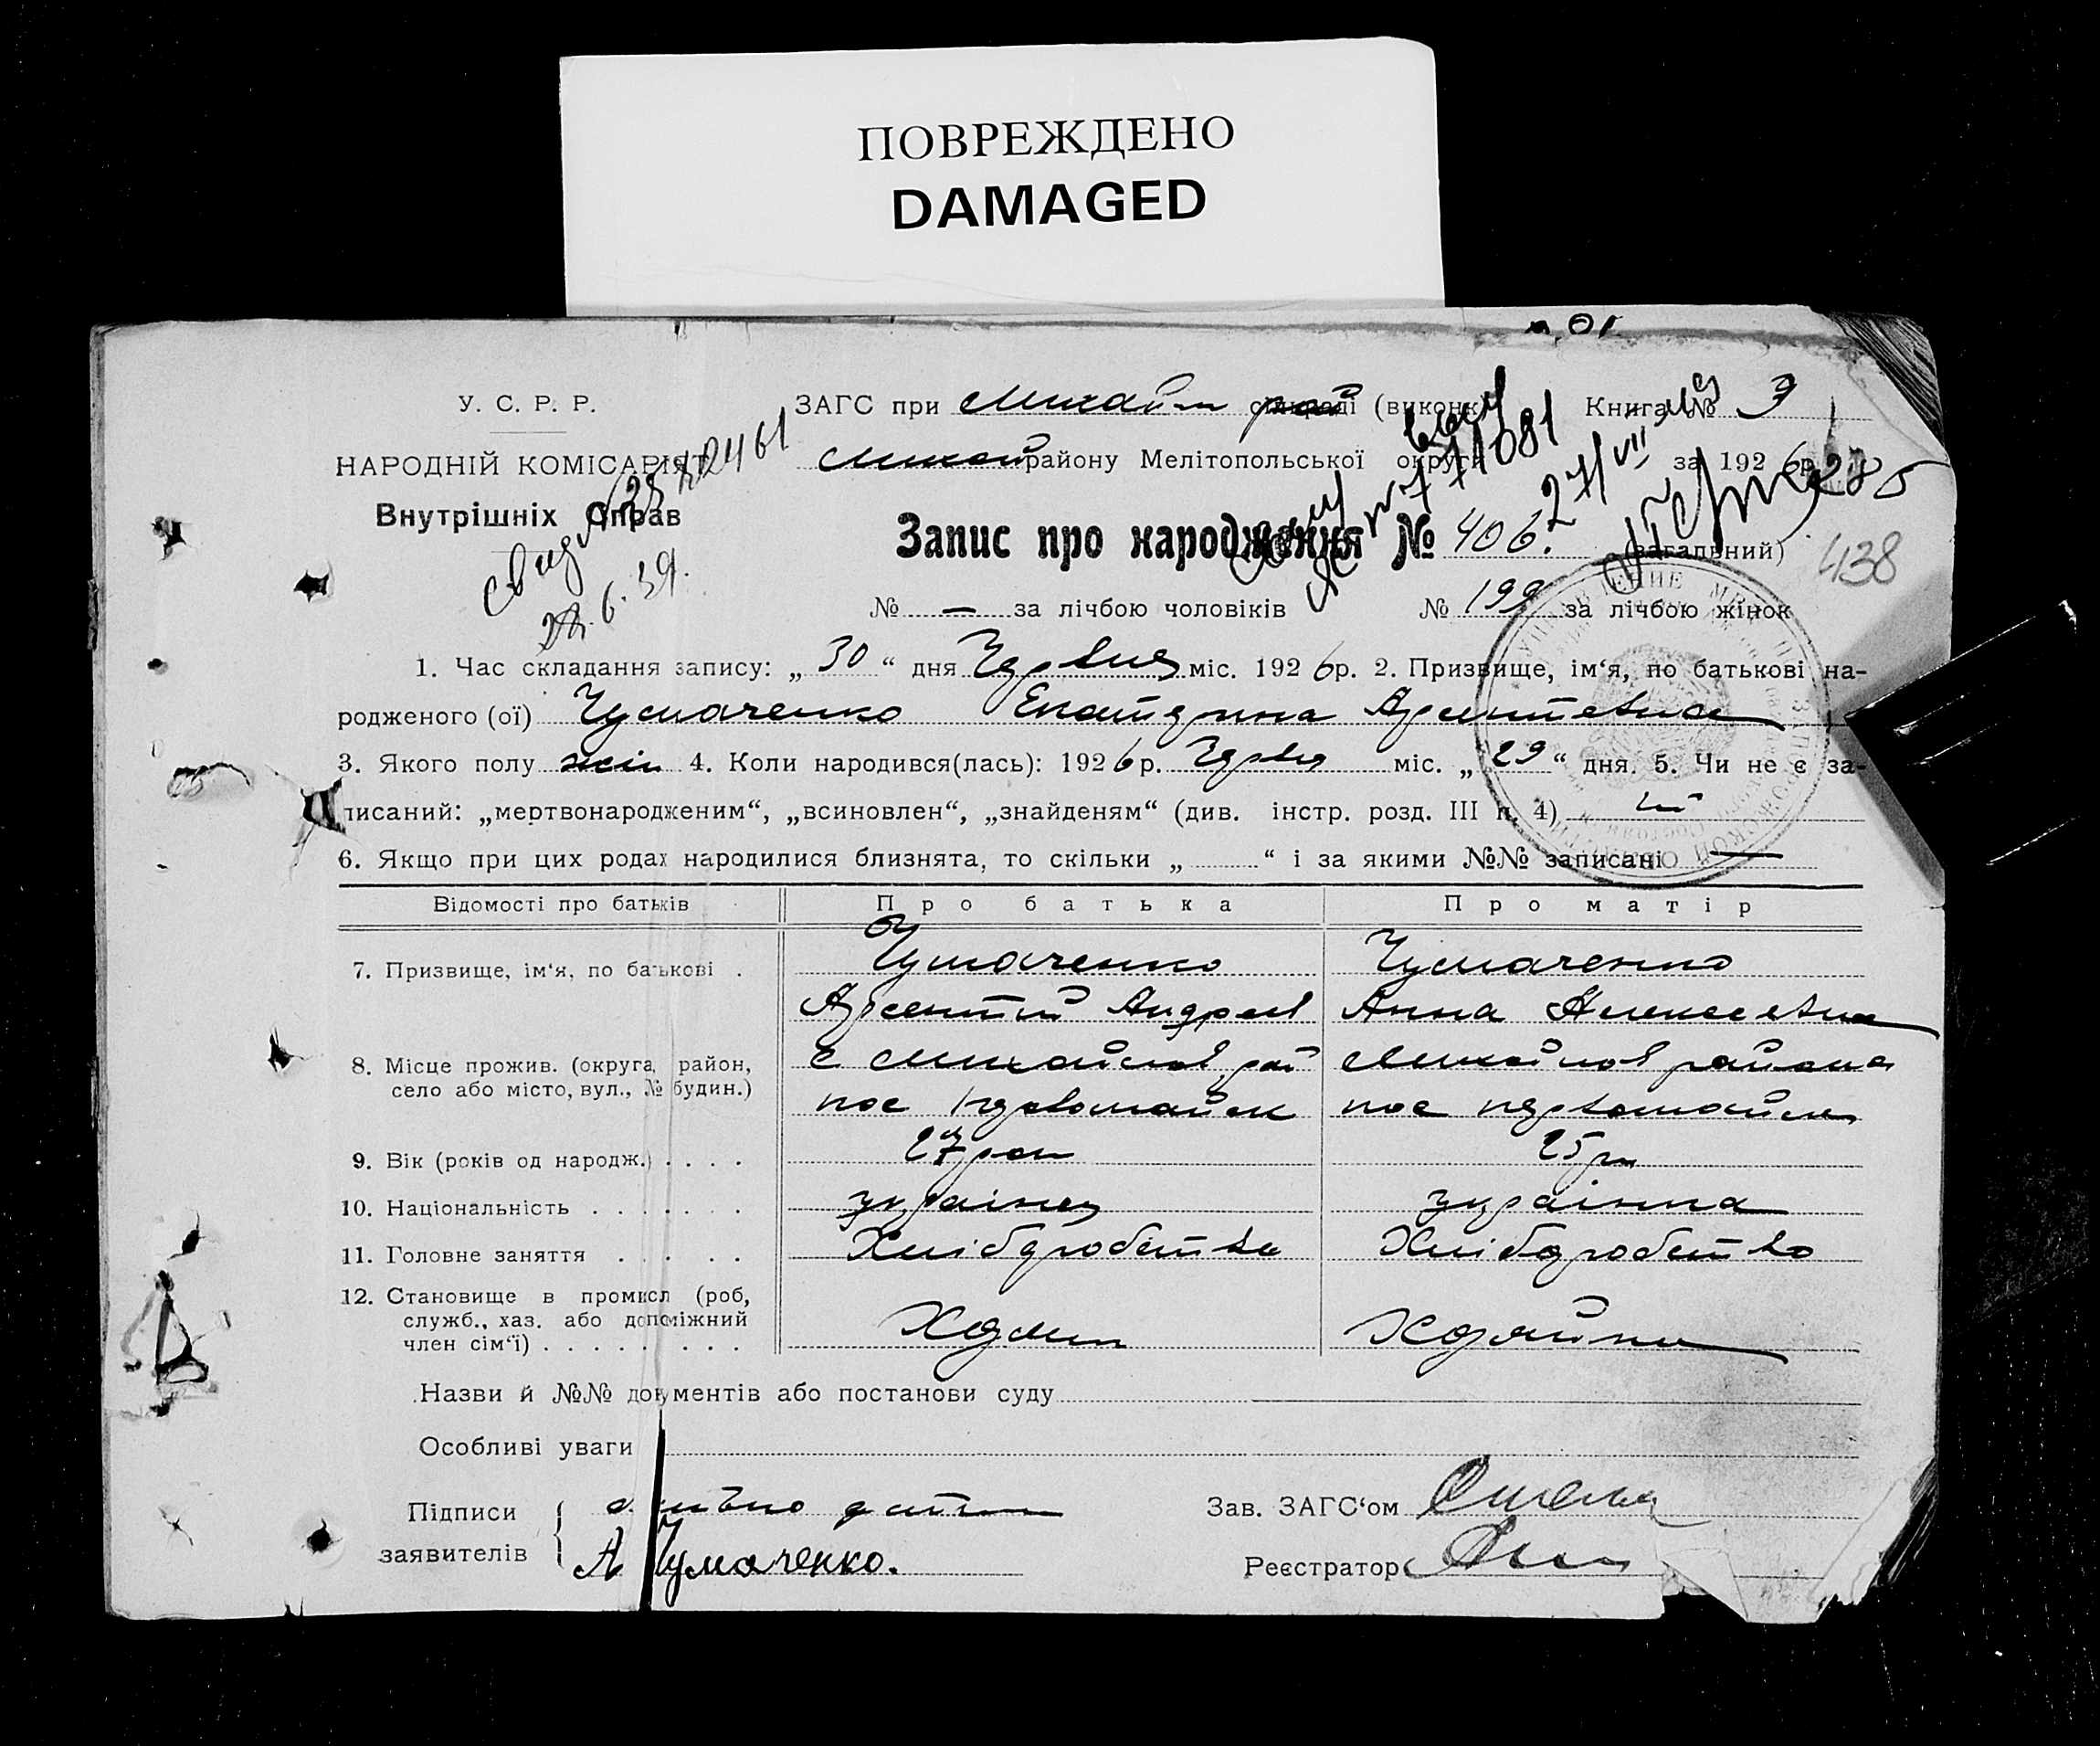 ПОВРЕЖДЕНО
DAMAGED
У. С. Р. Р.
ЗАГС при Михайл рай (виконк) Книга № 3
НАРОДНІЙ КОМІСАРІЯТ
Михай району Мелітопольської округи за 1926 р.
Внутрішніх Справ
27/VII
Запис про народження № 406. (загальний)
438
28.6.39.
№ — за лічбою чоловіків № 199 за лічбою жінок
1. Час складання запису: „30“ дня Червня міс. 1926 р. 2. Призвище, ім‘я, по батькові на-
родженого (ої) Чумаченко Екатерина Арсентьевна
3. Якого полу жін 4. Коли народився(лась): 1926 р. Червня міс. „29“ дня. 5. Чи не є за-
писаний: „мертвонародженим“, „всиновлен“, „знайденям“ (див. інстр. розд. III п. 4)
6. Якщо при цих родах народилися близнята, то скільки „ “ і за якими №№ записані —
Відомості про батьків Про батька Про матір
7. Призвище, ім‘я, по батькові . Чумаченко Чумаченко
Арсентий Андреев Анна Алексеевна
8. Місце прожив. (округа, район, село або місто, вул., № будин.) с Михайлов. рай Михайлов района
пос Первомайск пос первомайск
9. Вік (років од народж.) . . . . 27 рок 25 рок
10. Національність . . . . . . . українец українка
11. Головне заняття . . . . . Хліборобство Хліборобство
12. Становище в промисл (роб, служб., хаз. або допоміжний член сім‘ї) . . . . . . . . Хозяин Хозяйка
Назви й №№ документів або постанови суду
Особливі уваги
Підписи
Зав. ЗАГС‘ом
заявителів А Чумаченко.
Реєстратор